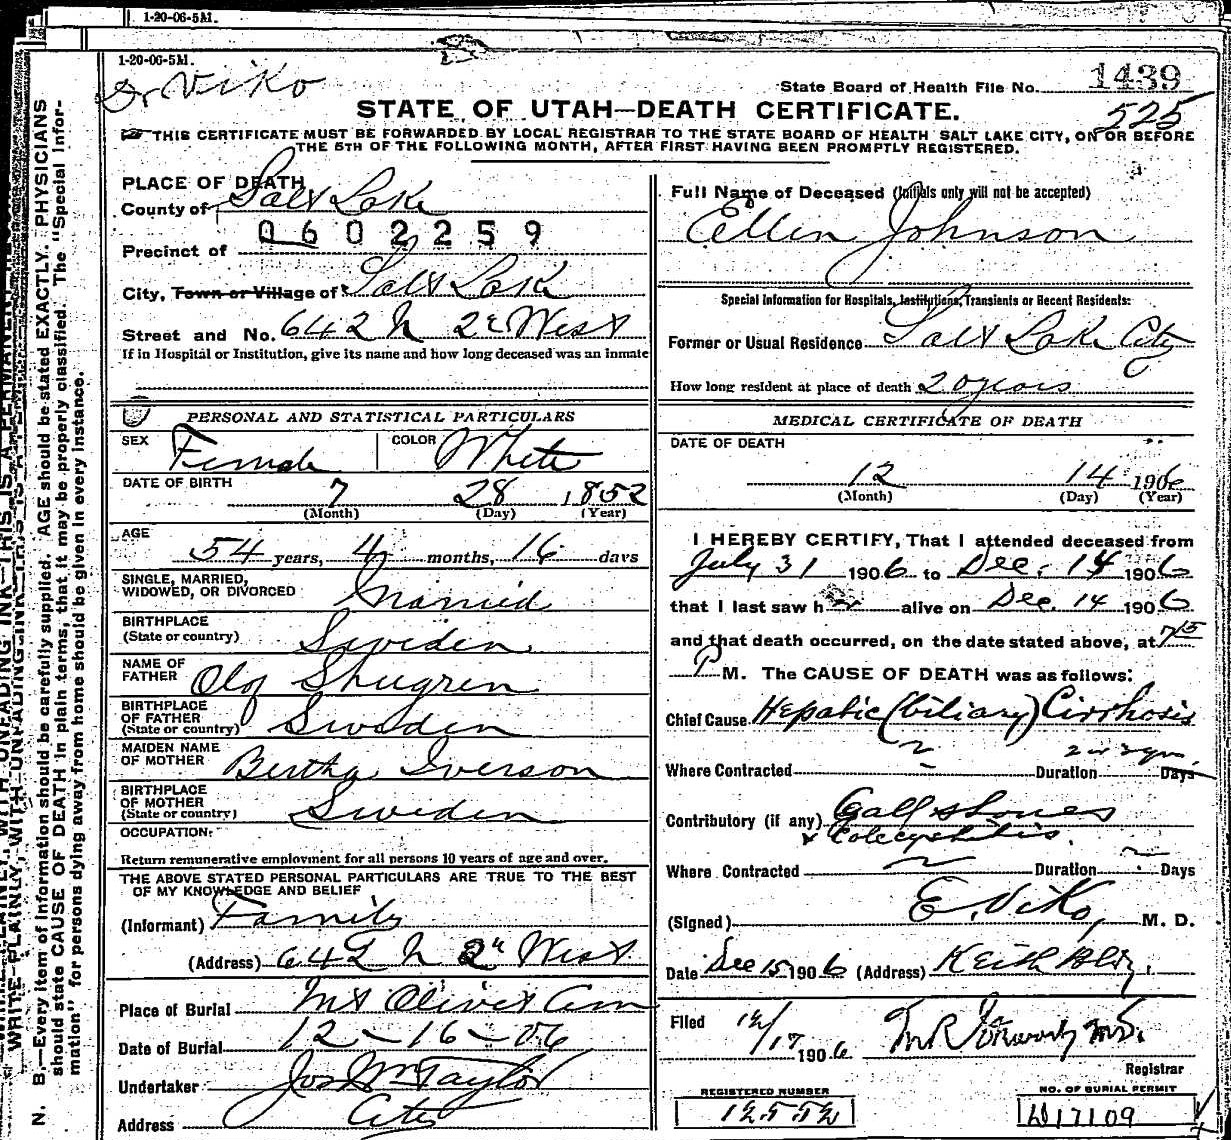 1-20-06-5M.
1-20-06-5M.
Dr Viko
State Board of Health File No. 1439
525
STATE OF UTAH—DEATH CERTIFICATE.
THIS CERTIFICATE MUST BE FORWARDED BY LOCAL REGISTRAR TO THE STATE BOARD OF HEALTH SALT LAKE CITY, ON OR BEFORE
THE 5TH OF THE FOLLOWING MONTH, AFTER FIRST HAVING BEEN PROMPTLY REGISTERED.
PLACE OF DEATH
County of Salt Lake
0602259
Precinct of
City, Town or Village of Salt Lake
Street and No. 642 N 2d West
If in Hospital or Institution, give its name and how long deceased was an inmate
PERSONAL AND STATISTICAL PARTICULARS
SEX Female COLOR White
DATE OF BIRTH 7 28 1852
(Month) (Day) (Year)
AGE 54 years, 4 months, 16 days
SINGLE, MARRIED,
WIDOWED, OR DIVORCED Married
BIRTHPLACE
(State or country) Sweden
NAME OF
FATHER Olof Shugren
BIRTHPLACE
OF FATHER
(State or country) Sweden
MAIDEN NAME
OF MOTHER Bertha Iverson
BIRTHPLACE
OF MOTHER
(State or country) Sweden
OCCUPATION:
Return remunerative employment for all persons 10 years of age and over.
THE ABOVE STATED PERSONAL PARTICULARS ARE TRUE TO THE BEST
OF MY KNOWLEDGE AND BELIEF
(Informant) Family
(Address) 642 N 2d West
Place of Burial Mt Olivet Cem
Date of Burial 12-16-06
Undertaker Jos Wm Taylor
Address City
Full Name of Deceased (Initials only will not be accepted)
Ellen Johnson
Special Information for Hospitals, Institutions, Transients or Recent Residents:
Former or Usual Residence Salt Lake City
How long resident at place of death 20 years
MEDICAL CERTIFICATE OF DEATH
DATE OF DEATH
12 14 1906
(Month) (Day) (Year)
I HEREBY CERTIFY, That I attended deceased from
July 31 1906 to Dec. 14 1906
that I last saw her alive on Dec. 14 1906
and that death occurred, on the date stated above, at 7 15
P M. The CAUSE OF DEATH was as follows:
Chief Cause Hepatic (biliary) Cirrhosis
2 or 3 yrs.
Where Contracted Duration Days
Contributory (if any) Gall stones
& Colecystitis.
Where Contracted Duration Days
(Signed) E. Viko, M. D.
Date Dec 15 1906 (Address) Keith Bldg.
Filed 12/17 1906
Registrar
REGISTERED NUMBER
12552
NO. OF BURIAL PERMIT
W17109
WRITE PLAINLY, WITH UNFADING INK—THIS IS A PERMANENT
N. B.—Every item of information should be carefully supplied. AGE should be stated EXACTLY. PHYSICIANS
should state CAUSE OF DEATH in plain terms, that it may be properly classified. The "Special Infor-
mation" for persons dying away from home should be given in every instance.